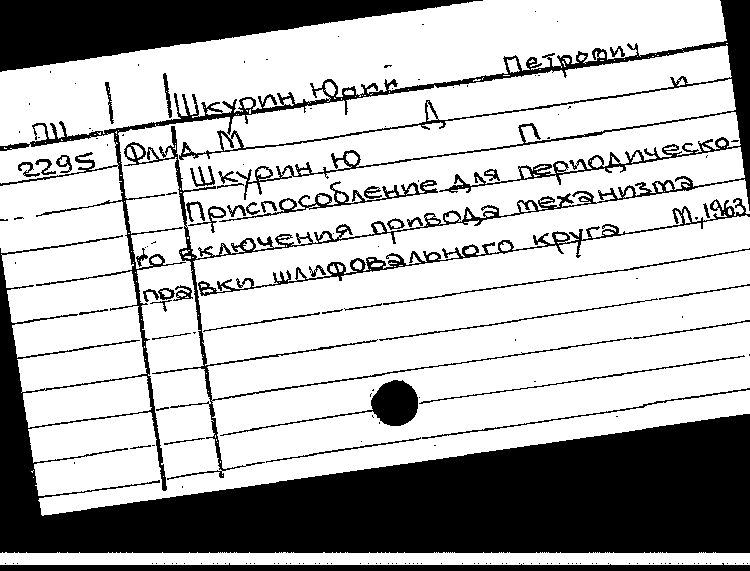 Шкурин, Юрий Петрович
П11
2295
Флид, М Д и
Шкурин, Ю П
Приспособление для периодическо-
го включения привода механизма
правки шлифовального круга М., 1963